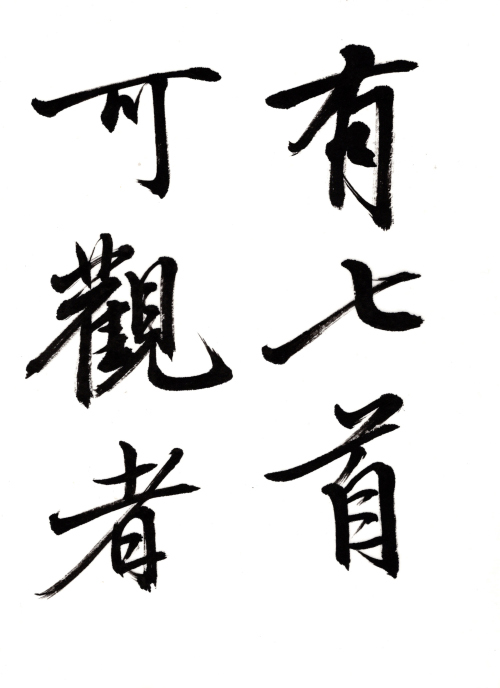 有七首
可觀者